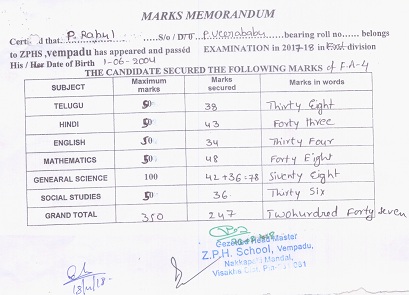 MARKS MEMORANDUM
that P. Rahul S/o / D/o P. Veerababu bearing roll no belongs
to ZPHS ,vempadu has appeared and passed EXAMINATION in 2017-18 in First division
His / Her Date of Birth 1-06-2004
THE CANDIDATE SECURED THE FOLLOWING MARKS of F.A-4
SUBJECT Maximum marks Marks secured Marks in words
TELUGU 50 38 Thirty Eight
HINDI 50 43 Forty three
ENGLISH 50 34 Thirty Four
MATHEMATICS 50 48 Forty Eight
GENEARAL SCIENCE 100 42+36=78 Siventy Eight
SOCIAL STUDIES 50 36 Thirty Six
GRAND TOTAL 350 247 Twohundred Forty seven
Gezetted Head Master
Z.P.H. School, Vempadu,
Nakkapalli Mandal,
Visakha